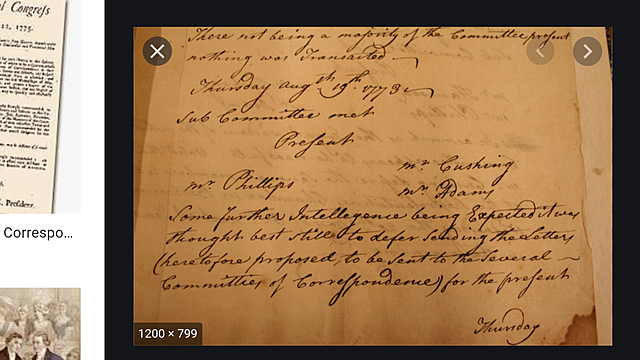 al Congress
12, 1775.
. Presdent.
Correspo...
There not being a majority of the Committee present
nothing was Transacted
Thursday Augst. 19th. 1773
Sub Committee met
Present
mr Cushing
mr Phillips
mr Adams
Some further Intellegence being Expected it was
thought best still to defer sending the Letters
(heretofore proposed, to be sent to the Several
Committies of Correspondence) for the present
Thursday
1200 × 799